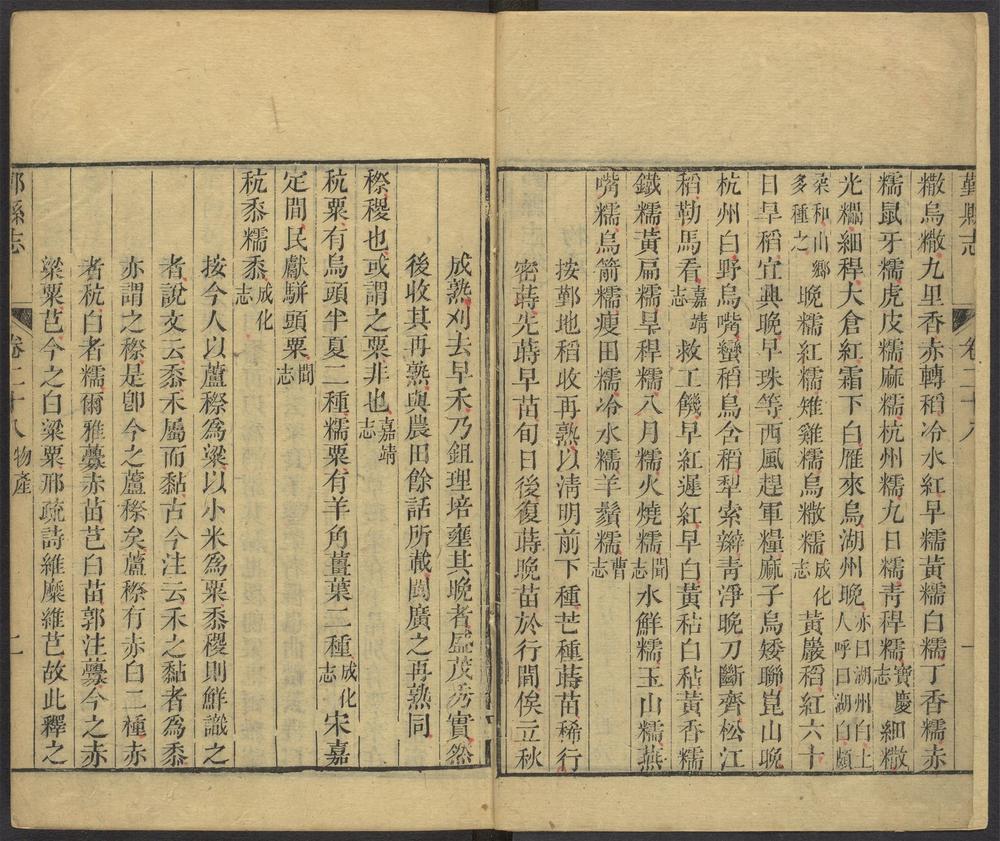 鄞縣志
卷二十八
一
糤烏糤九里香赤轉稻冷水紅早糯黃糯白糯丁香糯赤
糯鼠牙糯虎皮糯麻糯杭州糯九日糯靑稈糯寶慶志細糤
光糯細稈大倉紅霜下白雁來烏湖州晚亦曰湖州白土人呼曰湖白頗
柔和山鄉多種之晚糯紅糯雉雞糯烏糤糯成化志黃巖稻紅六十
日旱稻宜興晚早珠等西風趕軍糧麻子烏矮聯崑山晚
杭州白野烏嘴蠻稻烏含稻犁索辮靑淨晚刀斷齊松江
稻勒馬看嘉靖志救工饑早紅遲紅早白黃秥白秥黃香糯
鐵糯黃扁糯旱稈糯八月糯火燒糯聞志水鮮糯玉山糯燕
嘴糯烏箭糯瘦田糯冷水糯羊鬚糯曹志
按鄞地稻收再熟以淸明前下種芒種蒔苗稀行
密蒔先蒔早苗旬日後復蒔晚苗於行間俟立秋
成熟刈去早禾乃鉏理培壅其晚者盛茂秀實然
後收其再熟與農田餘話所載閩廣之再熟同
穄稷也或謂之粟非也嘉靖志
秔粟有烏頭半夏二種糯粟有羊角薑葉二種成化志宋嘉
定間民獻駢頭粟聞志
秔黍糯黍成化志
按今人以蘆穄爲粱以小米爲粟黍稷則鮮識之
者說文云黍禾屬而黏古今注云禾之黏者爲黍
亦謂之穄是卽今之蘆穄矣蘆穄有赤白二種赤
者秔白者糯爾雅虋赤苗芑白苗郭注虋今之赤
粱粟芑今之白粱粟邢疏詩維穈維芑故此釋之
鄞縣志
卷二十八
物產
二